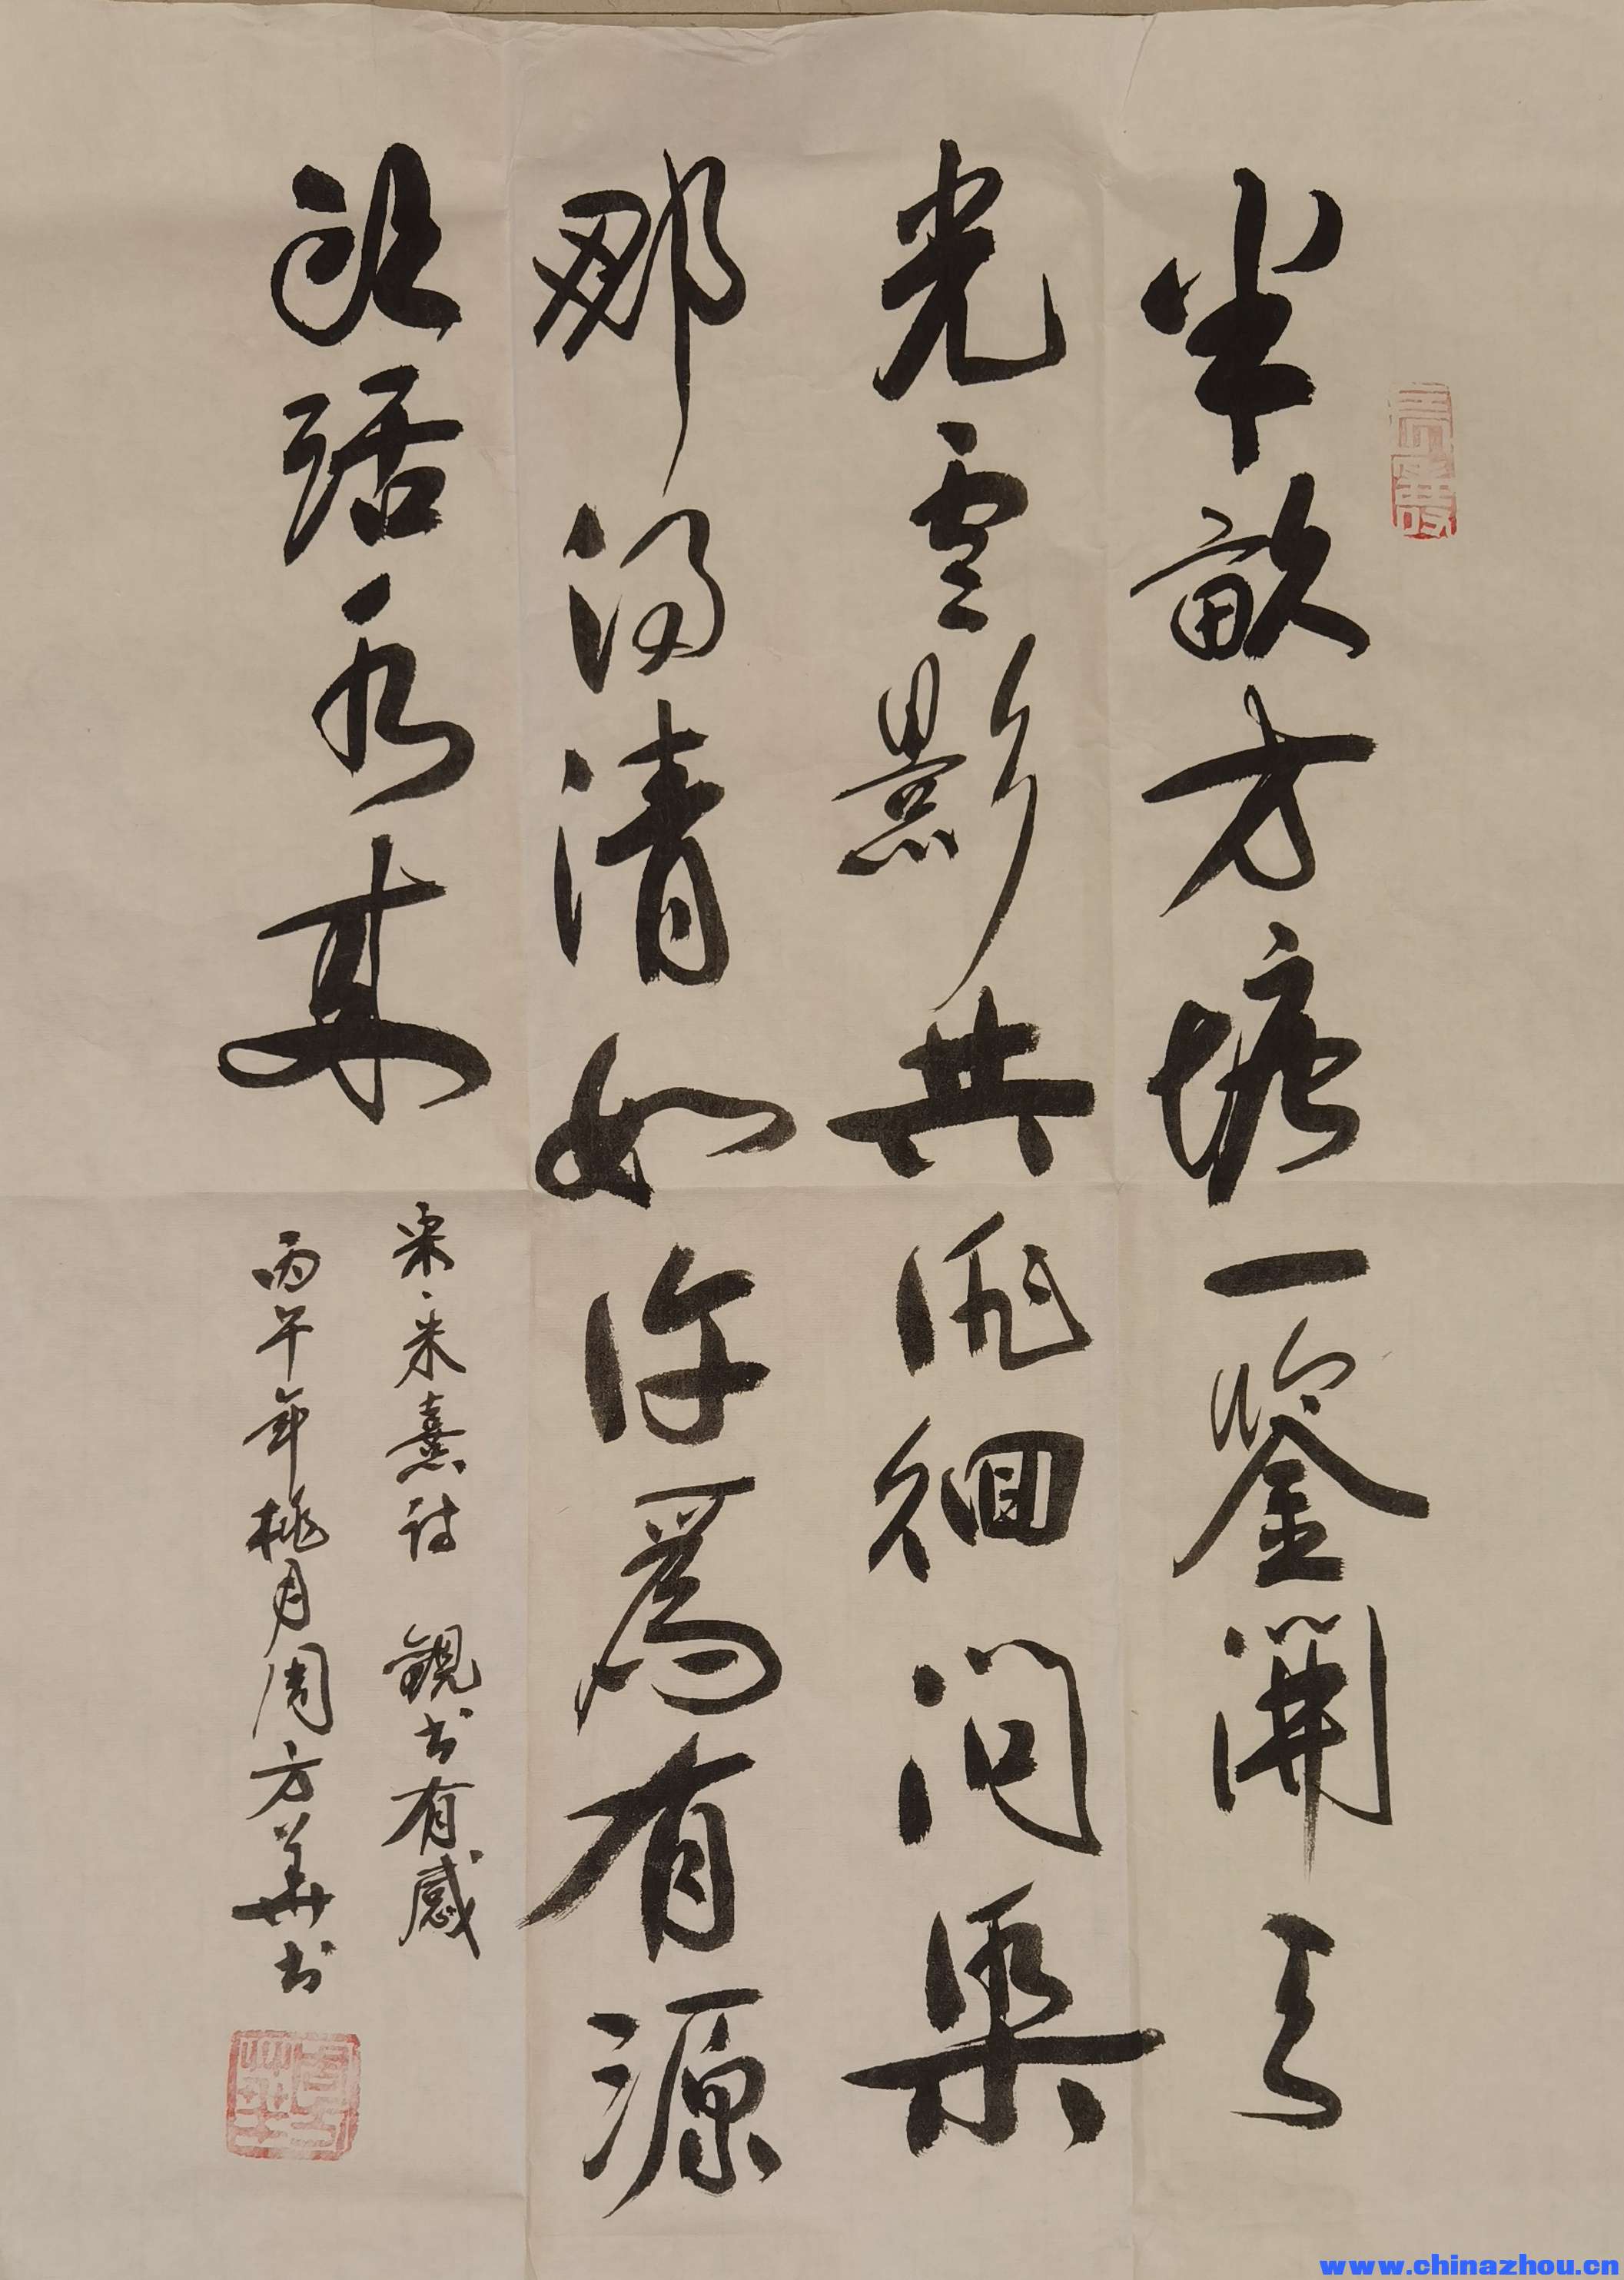 半畝方塘一鑒開天
光雲影共徘徊問渠
那得清如許爲有源
頭活水来
宋·朱熹詩 觀书有感
丙午年桃月周方華书
www.chinazhou.cn